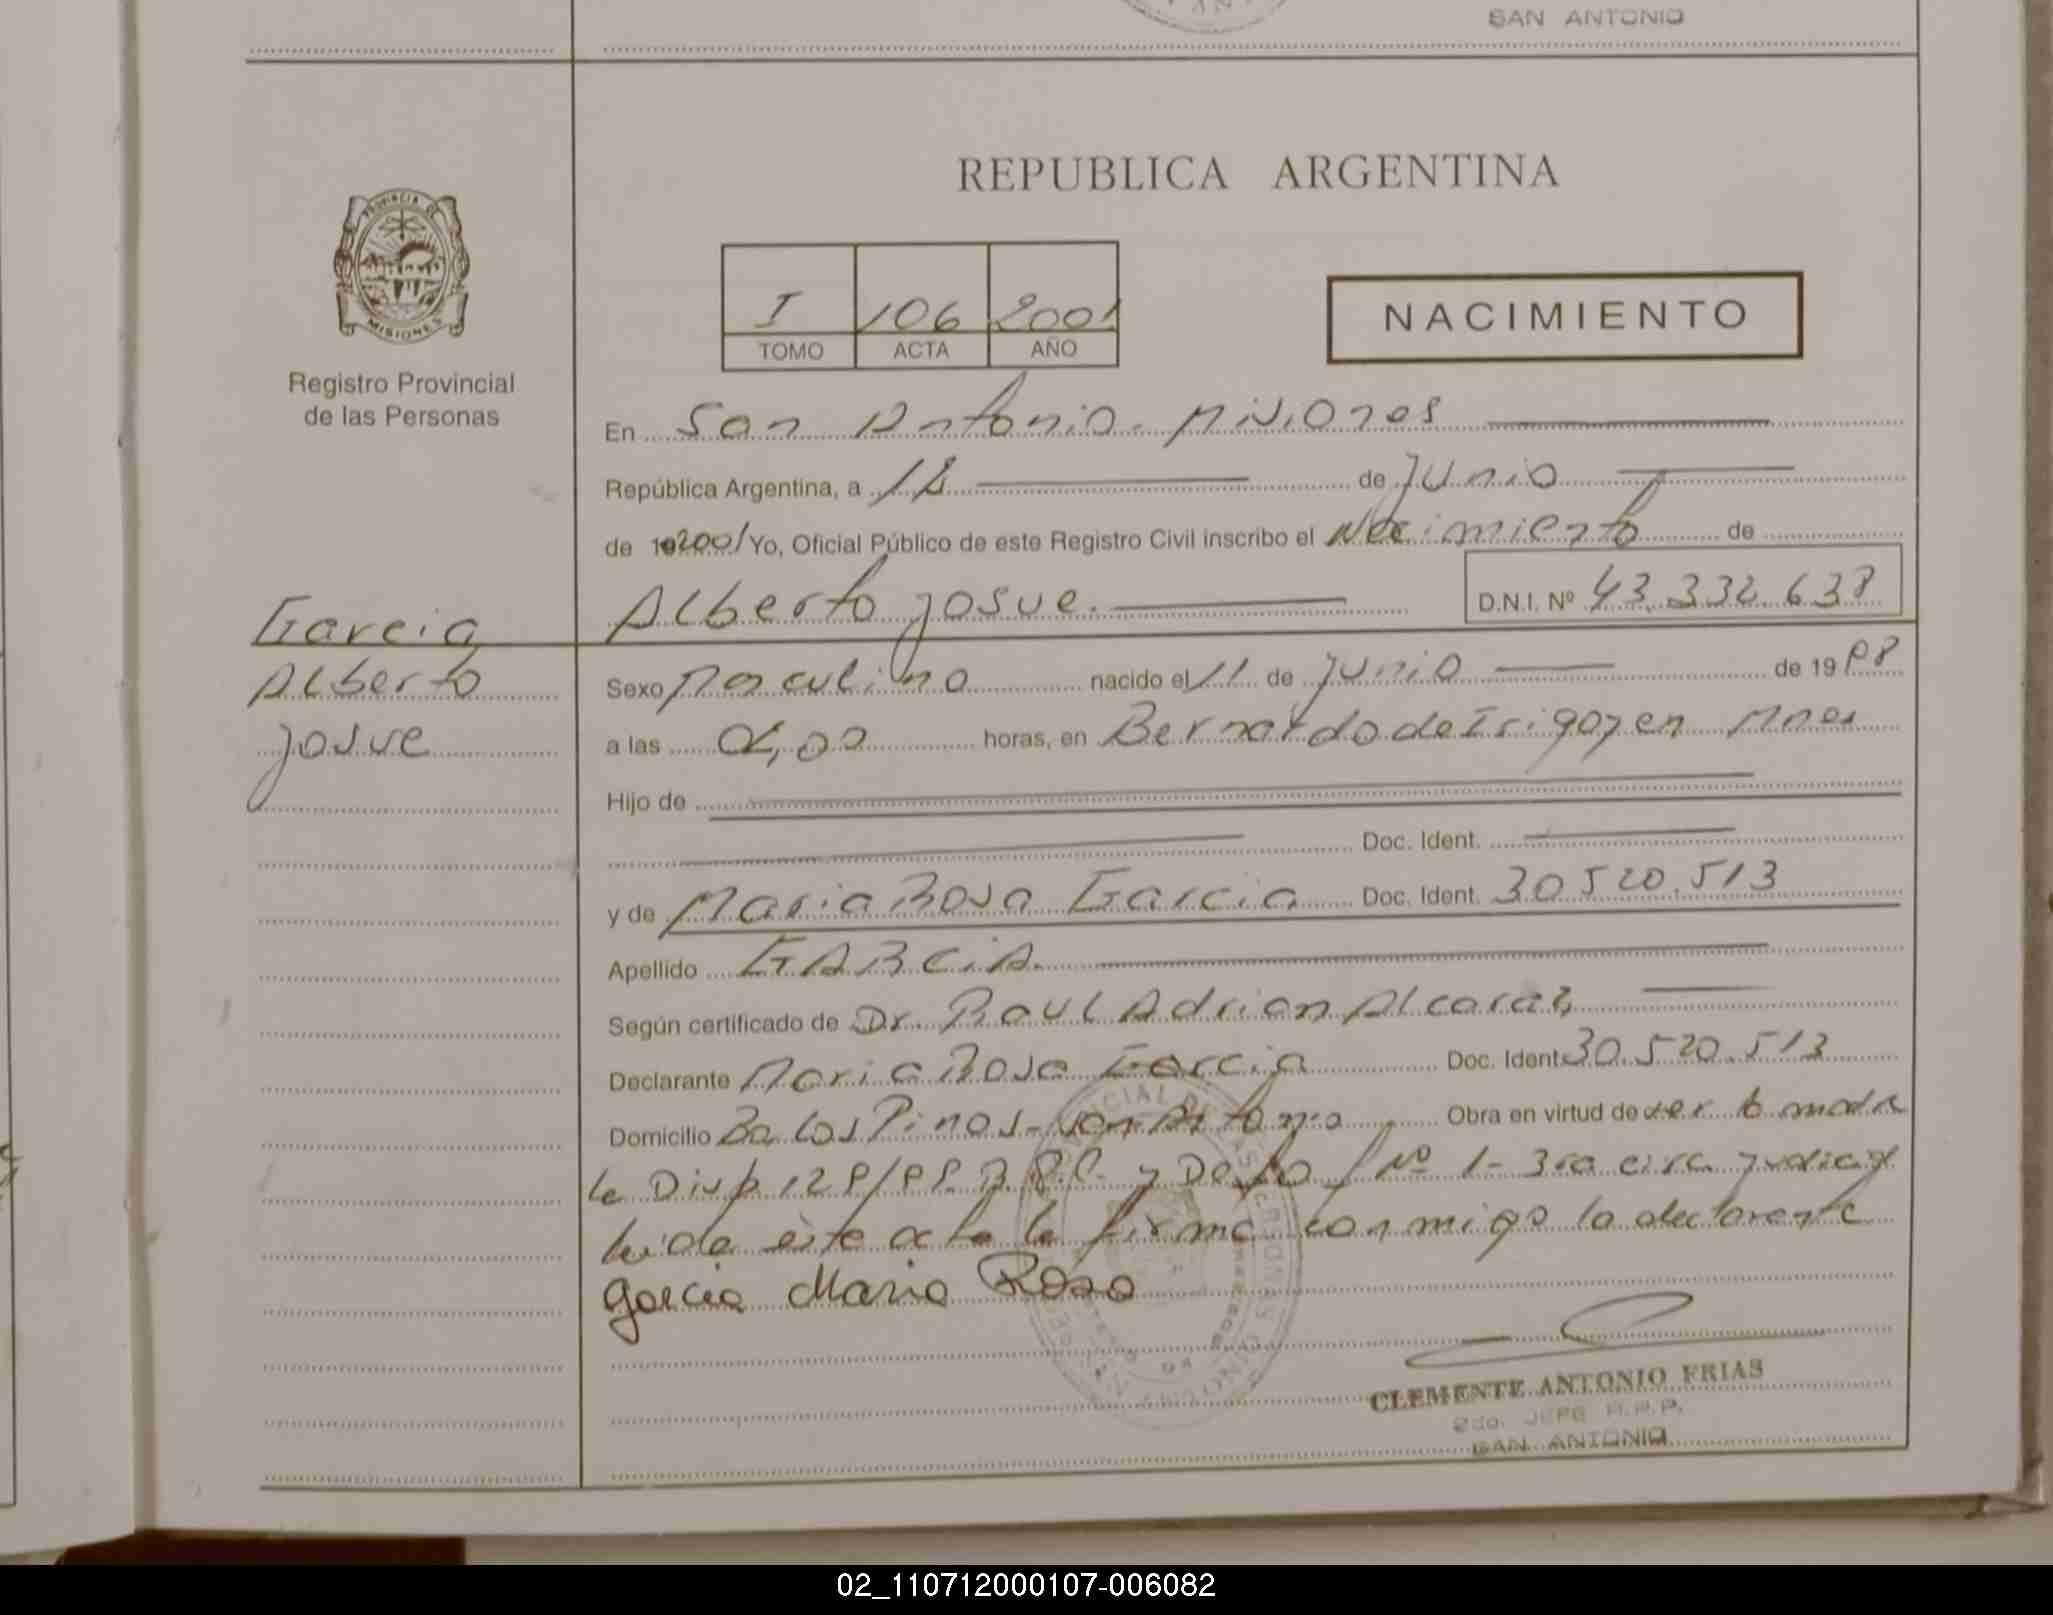 SAN ANTONIO
REPUBLICA ARGENTINA
PROVINCIA DE
MISIONES
Registro Provincial
de las Personas
I 106 2001
TOMO ACTA AÑO
NACIMIENTO
En San Antonio. Misiones
República Argentina, a 12 de Junio
de 192001 Yo, Oficial Público de este Registro Civil inscribo el Nacimiento de
Alberto Josue. D.N.I. Nº 43.332.638
Garcia
Alberto
Josue
Sexo Masculino nacido el 11 de Junio de 19 98
a las horas, en Bernardo de Irigoyen Mnes
Hijo de
Doc. Ident.
y de Maria Rosa Garcia Doc. Ident. 30.520.513
Apellido GARCIA.
Según certificado de Dr. Raul Adrian Alcaraz
Declarante Maria Rosa Garcia Doc. Ident. 30.520.513
Domicilio Bo Los Pinos - San Antonio Obra en virtud de ser la madre
y Nº 1 - 3ra circ judicial
leida este acta la firma conmigo la declarante
Garcia Maria Rosa
CLEMENTE ANTONIO FRIAS
2do. JEFE R.P.P.
SAN ANTONIO
02_110712000107-006082